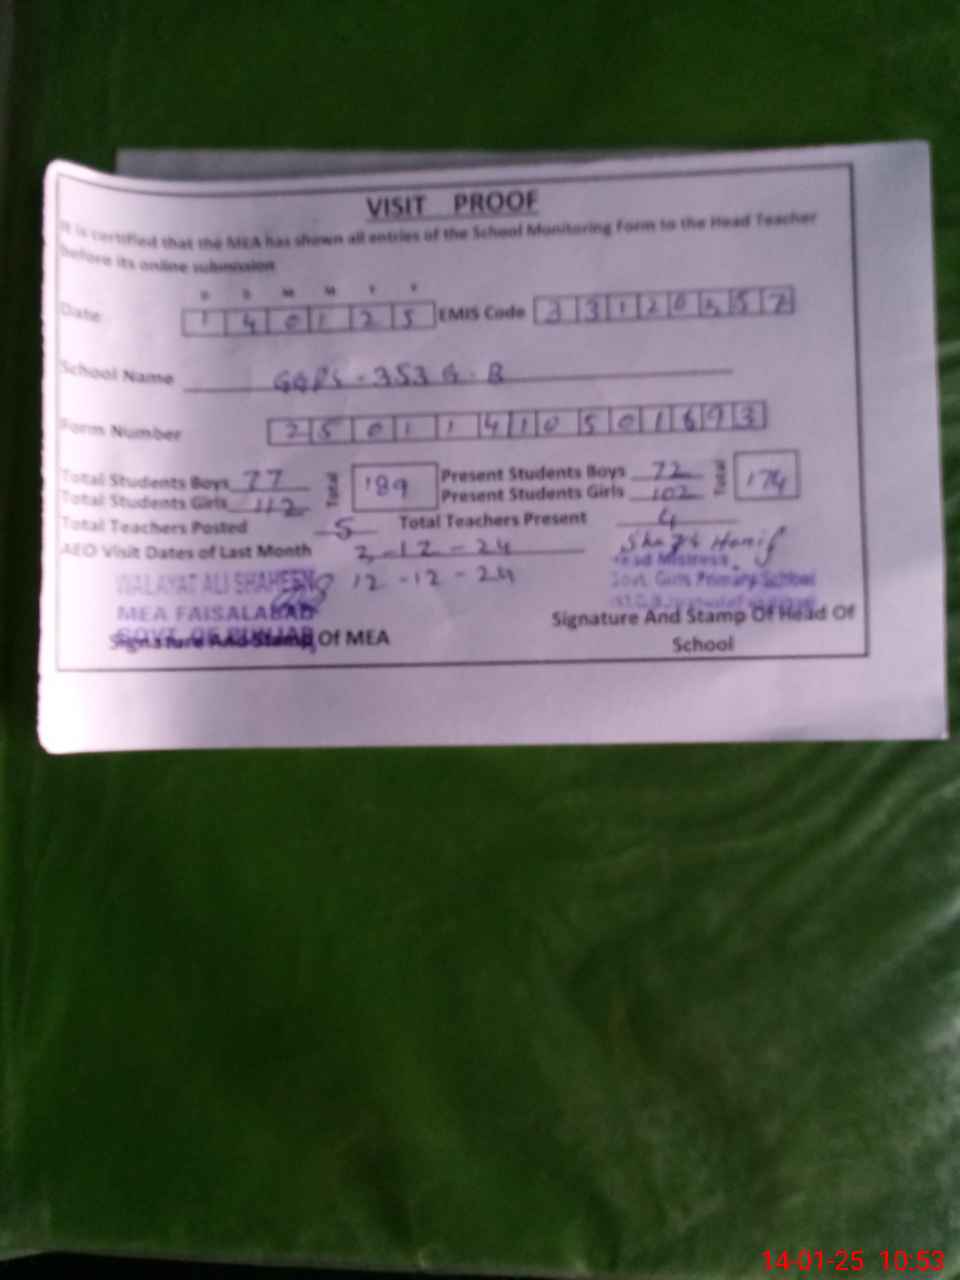 VISIT PROOF
It is certified that the MEA has shown all entries of the School Monitoring Form to the Head Teacher
before its online submission
D D M M Y Y
Date 1 4 0 1 2 5 EMIS Code 3 3 1 2 0 5 5 7
School Name GGPS - 353 G.B
Form Number 2 5 0 1 1 4 1 0 5 0 1 6 9 3
Total Students Boys 77 Total 189 Present Students Boys 72 Total 174
Total Students Girls 112 Present Students Girls 102
Total Teachers Posted 5 Total Teachers Present 4
AEO Visit Dates of Last Month 2-12-24
12-12-24
Hanif
Head Mistress
Govt. Girls Primary School
WALAYAT ALI SHAHEEN
MEA FAISALABAD
GOVT. OF PUNJAB
Signature And Stamp Of MEA
Signature And Stamp Of Head Of
School
14-01-25 10:53